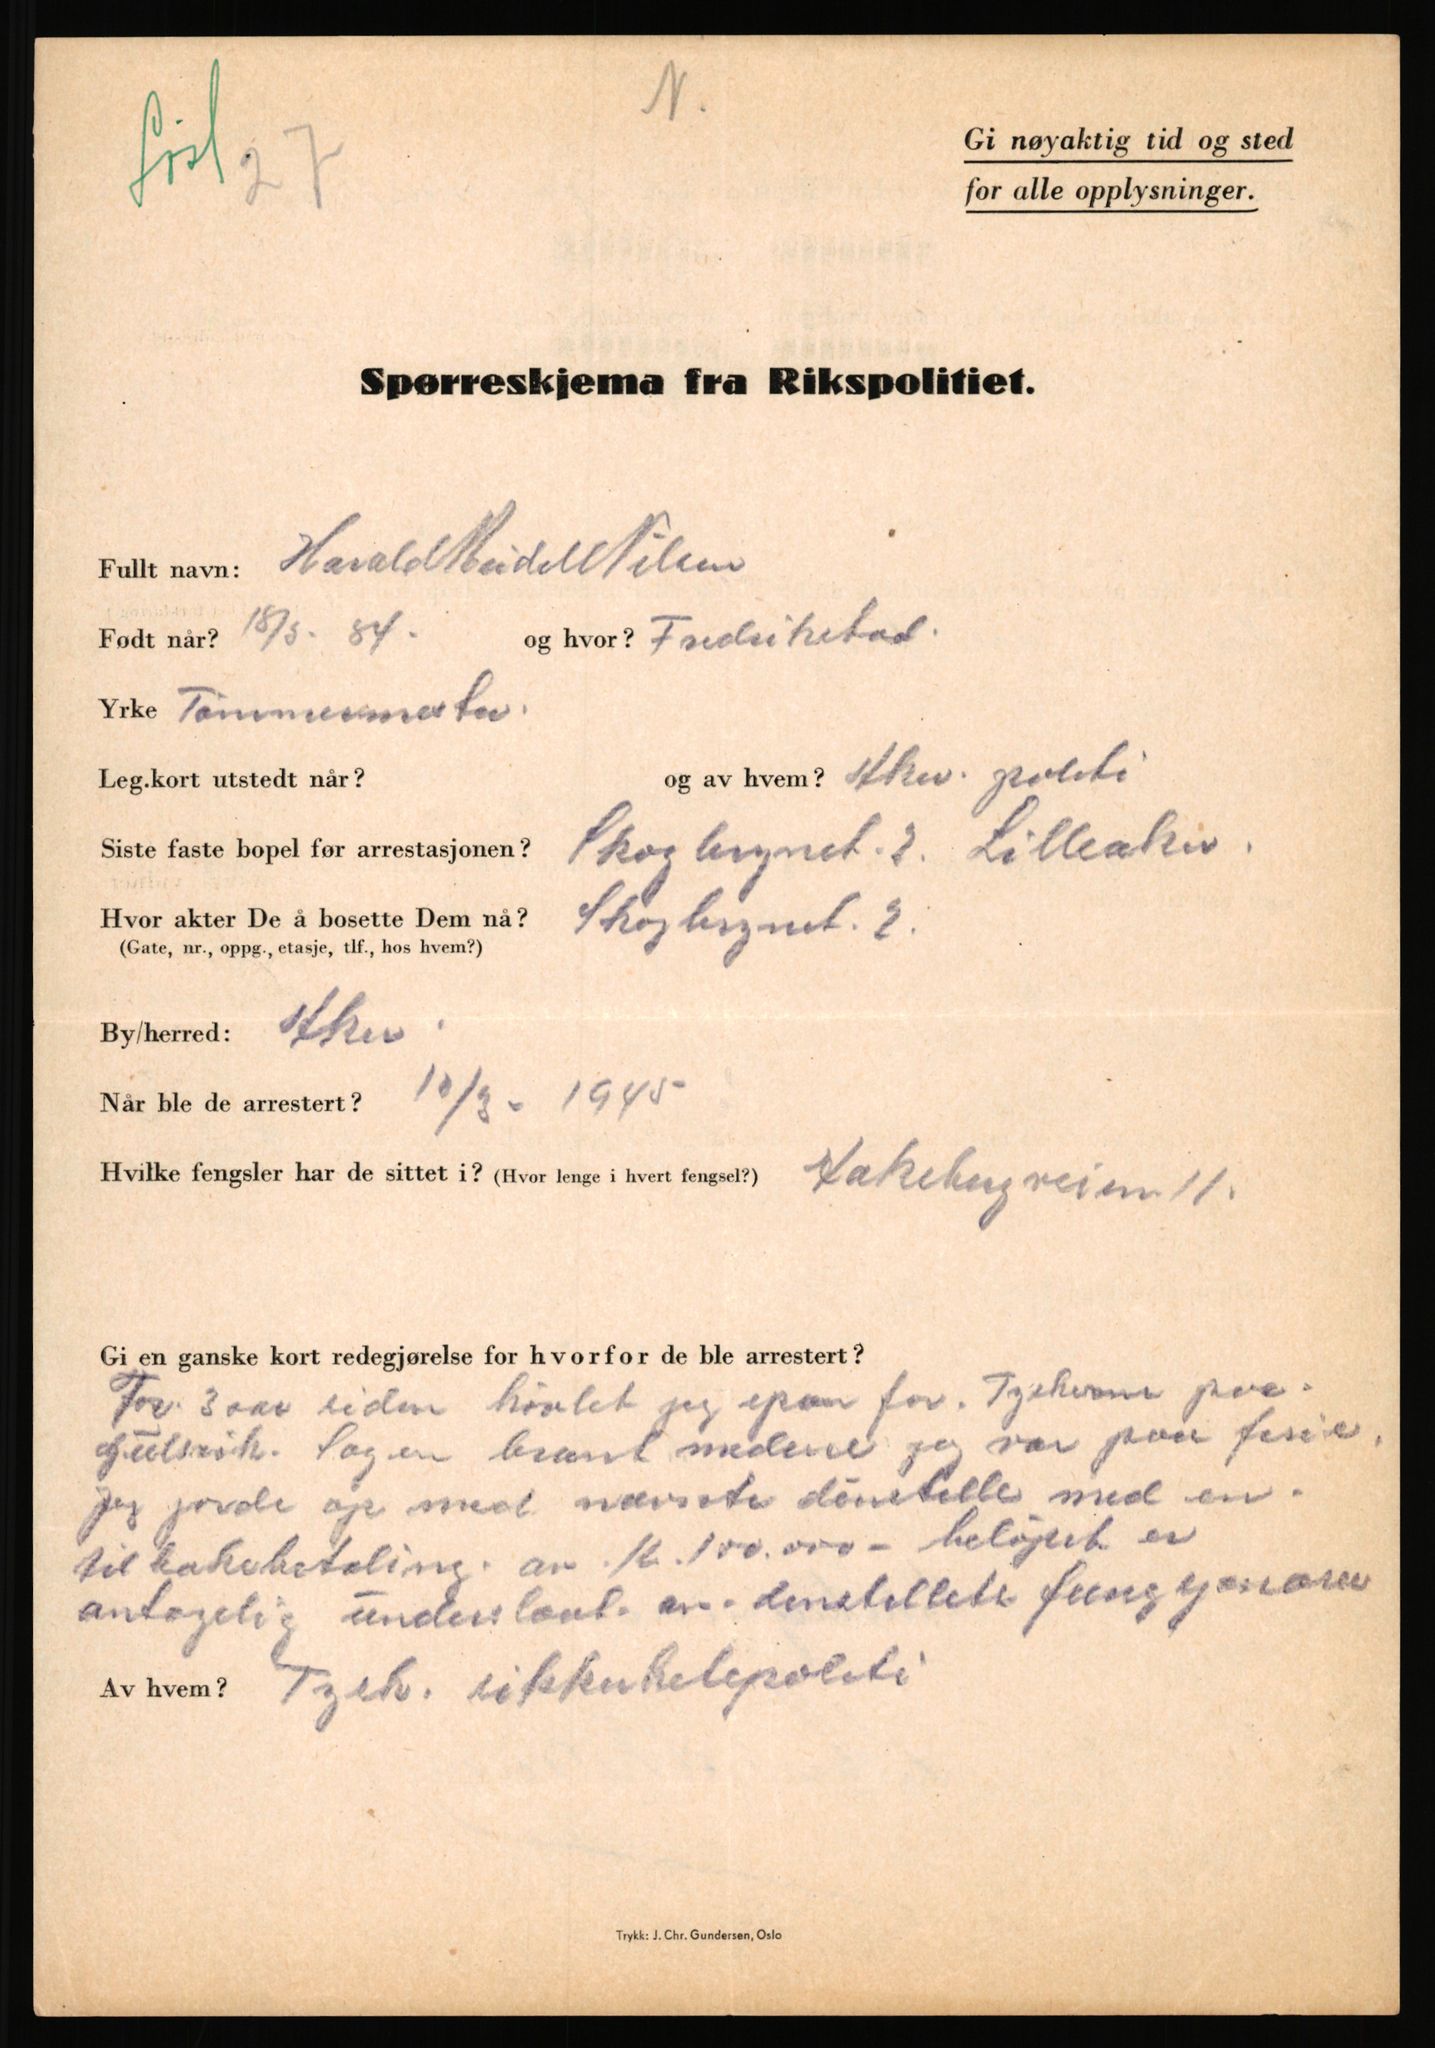 N.
Løsl 27
Gi nøyaktig tid og sted
for alle opplysninger.
Spørreskjema fra Rikspolitiet.
Fullt navn: Harald Meidell Nilsen
Født når? 18/5. 84. og hvor? Fredrikstad.
Yrke Tømmermester.
Leg.kort utstedt når? og av hvem? Aker. politi
Siste faste bopel før arrestasjonen? Skogbrynet. 2. Lilleaker.
Hvor akter De å bosette Dem nå? Skogbrynet. 2.
(Gate, nr., oppg., etasje, tlf., hos hvem?)
By/herred: Aker.
Når ble de arrestert? 10/3 - 1945
Hvilke fengsler har de sittet i? (Hvor lenge i hvert fengsel?) Kakebergveien 11.
Gi en ganske kort redegjørelse for hvorfor de ble arrestert?
For 3 aar siden høvlet jeg spon for. Tyskerne paa.
Gulsvik. Sagen brant medens jeg var paa ferie.
jeg jorde op med nævnte denstelle med en.
tilbakebetaling. av. k. 100.000 - beløpet er
antagelig underslaat. av. denstellets fungsjonærer
Av hvem? Tysk. sikkerhetspoliti
Trykk: J. Chr. Gundersen, Oslo